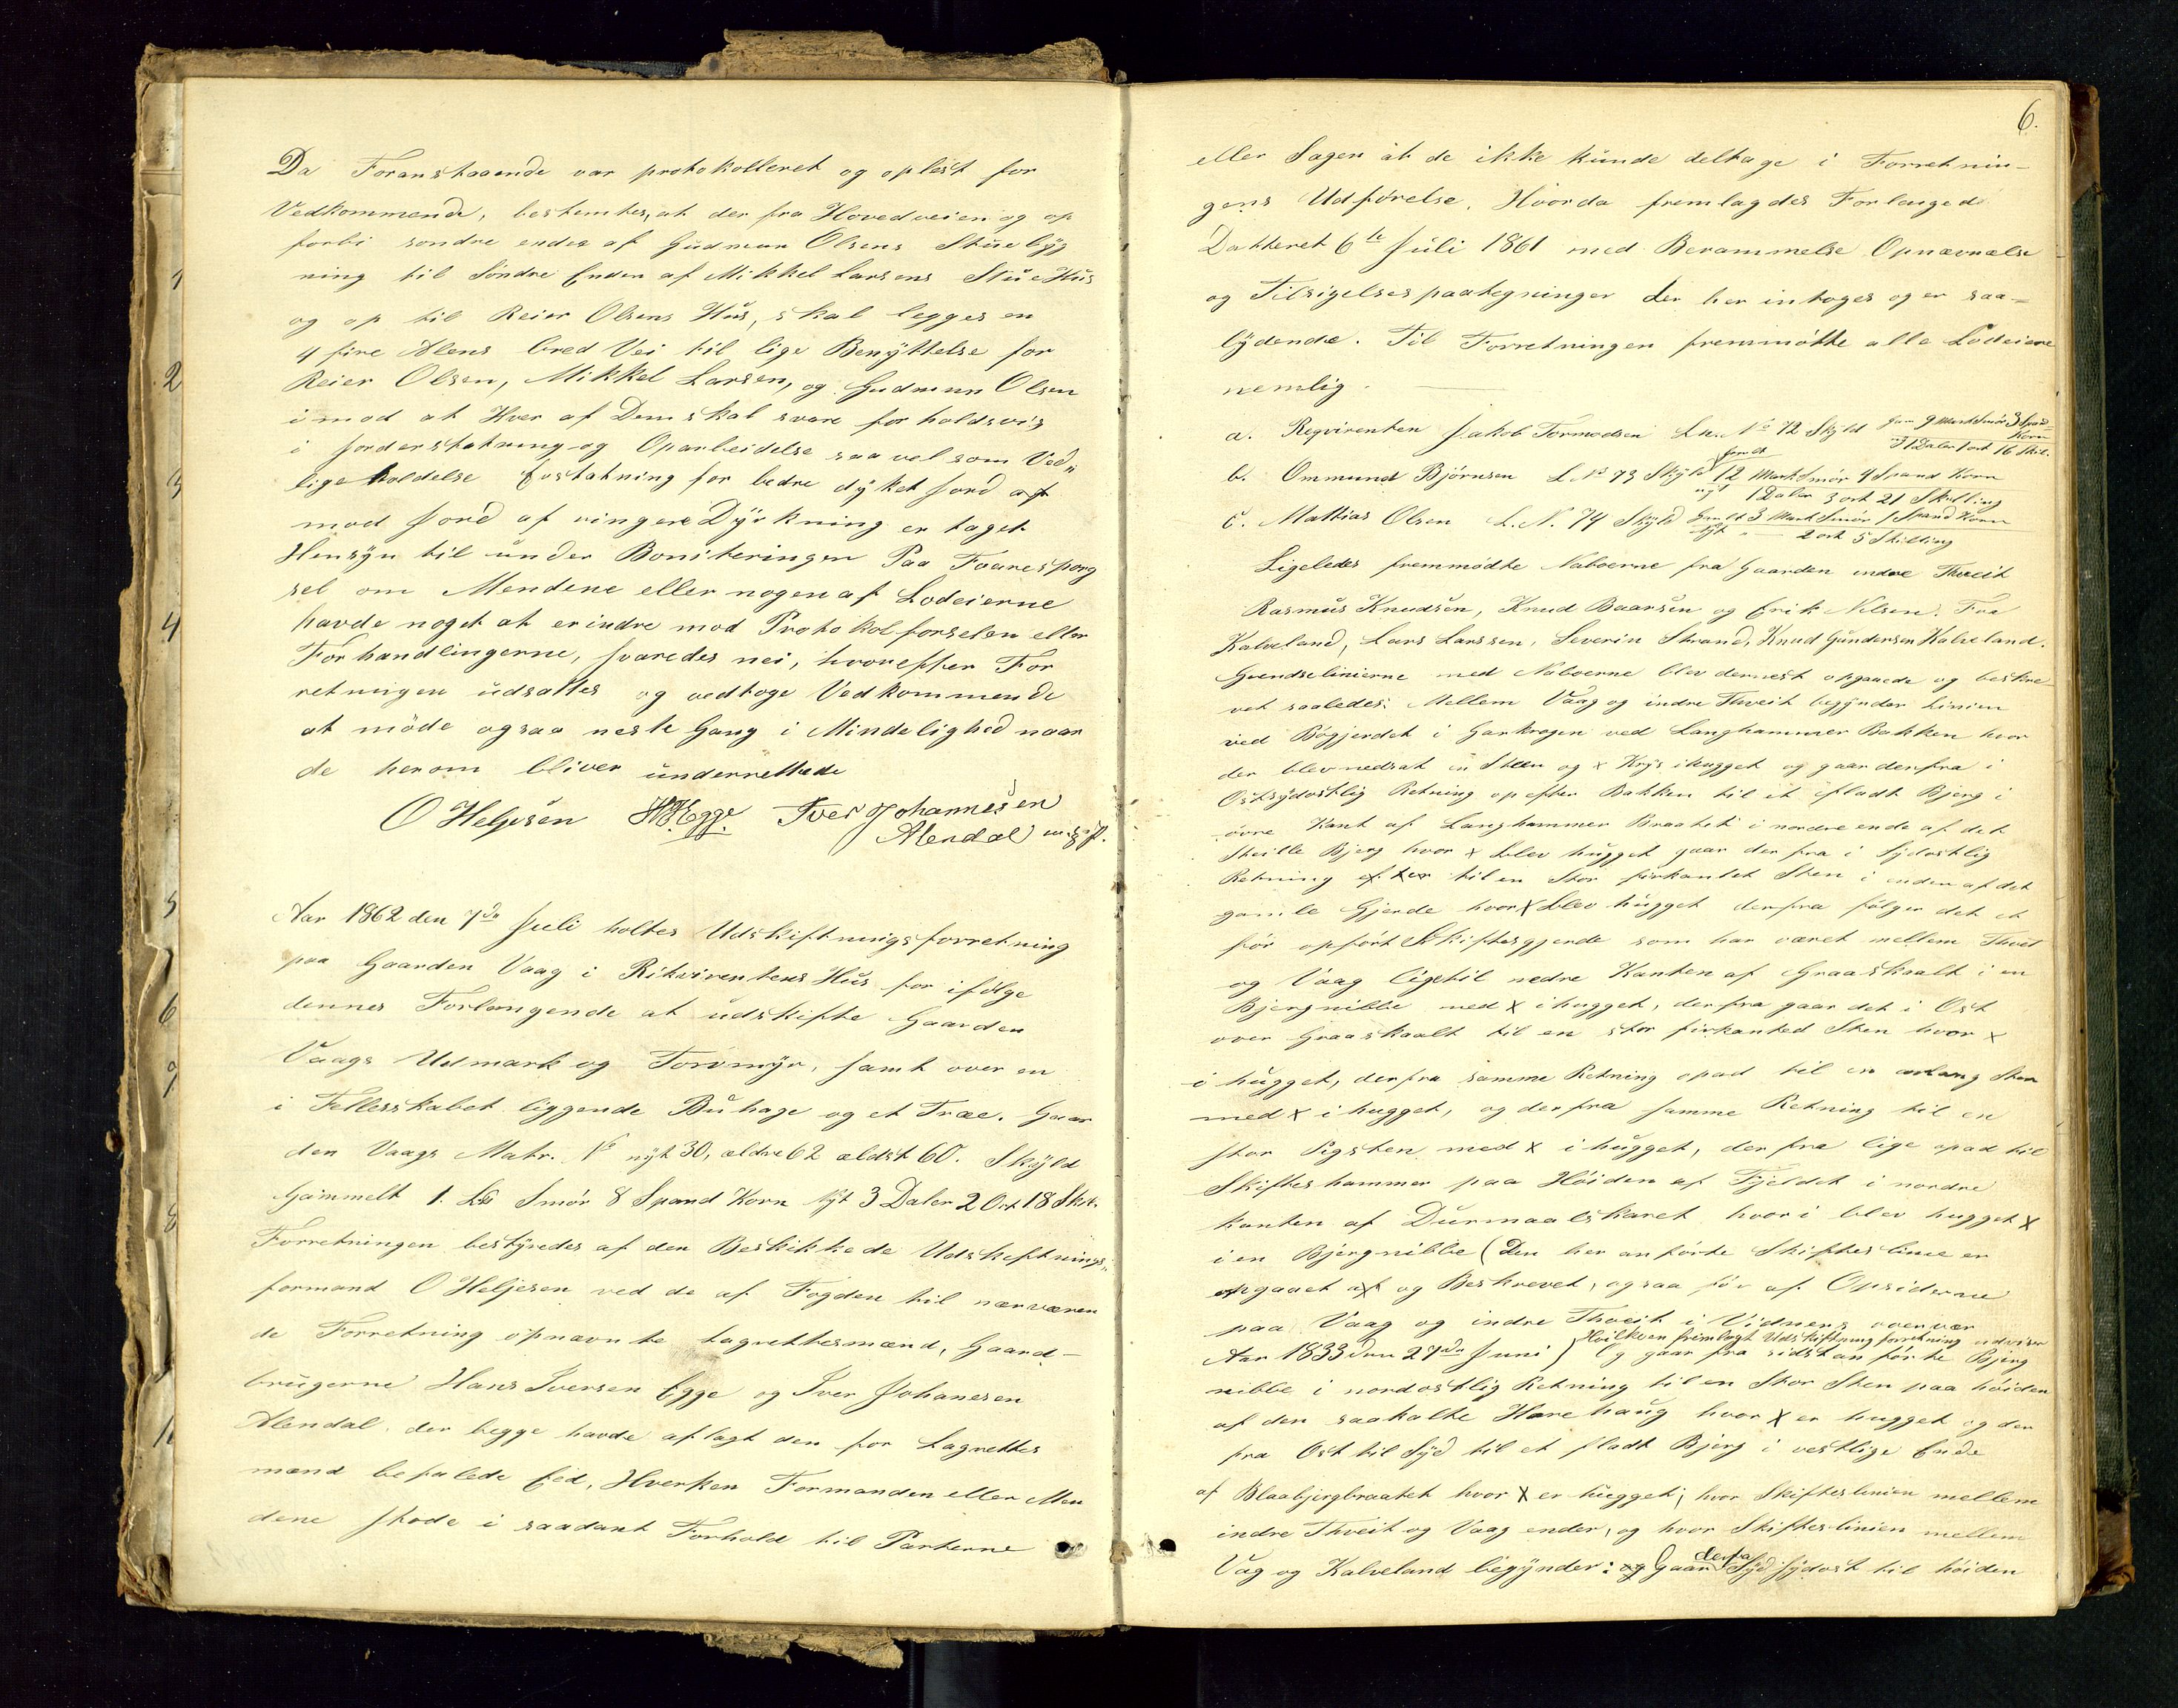 Da Foranstaaende var protokolleret og oplest for
Vedkommende, bestemtes, at der fra Hovedveien og op
forbi sondre ender af Gudmun Olsens Stuebÿg
ning til Söndre Enden af Mikkel Larsens StueHus
og op til Reier Olsens Hus, skal legges en
4 fire Alens bred Vei til lige Benÿttelse for
Reier Olsen, Mikkel Larsen, og Gudmun Olsen
imod at Hver af Dem skal svare forholdsvis
i Jorderstatning og Oparbeidelse saa vel som Ved„
ligeholdelse Erstatning for bedre dÿket Jord af
mod Jord af ringere Dÿrkning er taget
Hensÿn til under Boniteringen Paa Foarespörg
sel om Mendene eller nogen af Lodeierne
havde noget at erindre mod Protokolforselen eller
Forhandlingerne, svaredes nei, hvorefter For
retningen udsattes og vedtoge Vedkommende
at möde ogsaa neste Gang i Mindelighed naar
de herom bliver underrettede
O Heljesen HIEgge. Iver Johannesen
Alendal m.g.P.
Aar 1862 den 7de Juli holtes Udskiftningsforretning
paa Gaarden Vaag i Rikvirentens Hus for ifölge
dennes Forlangende at udskifte Gaarden
Vaags Udmark og Torvmÿr, samt over en
i Fellesskabet liggende Buhage og et Træe. Gaar
den Vaags Matr. No nÿt 30, ældre 62 ældst 60. Skÿld
Gammelt 1. L℔ Smör 8 Spand Korn Nÿt 3 Daler 2 Ort 18 Skil.
Forretningen bestÿredes af den Beskikkede Udskiftnings„
formand O Heljesen ved de af Fogden til nærværen
de Forretning opnævnte Lagrettesmænd, Gaard-
brugerne Hans Iversen Egge og Iver Johanesen
Alendal, der begge havde aflagt den for Lagrettes
mænd befalede Eed, Hverken Formanden eller Men
dene stode i saadant Forhold til Parterne
6.
eller Sagen at de ikke kunde deltage i Forretnin-
gens Udförelse. Hvorda fremlagdes Forlanged
Datteret 6te Juli 1861 med Berammelse Opnævnelse
og Tilsigelsespaategninger der her intages og er saa-
lÿdende. Til Forretningen fremmötte alle Lodeiere
nemlig.
a. Reqvirenten Jakob Tormodsen L.n. No 72 Skÿld gam 9 Mark Smör 3 Spand Korn
nÿ 1 Daler 1 ort 16 Skil.
b. Ommund Björnsen L No 73 Skÿld gamlt 12 Mark Smör 4 Spand Korn
nÿt 1 Daler 3 ort 21 Skilling
c. Mattias Olsen L. N. 74 Skÿld Gmlt 3 Mark Smör 1 Spand Korn
nÿt " — 2 ort 5 Skilling
Ligeledes fremmödte Naboerne fra Gaarden indre Thveit
Rasmus Knudsen, Knud Baarsen og Erik Nilsen. Fra
Kalveland, Lars Larssen, Severin Strand, Knud Gundersen Kalveland.
Grendselinierne med Naboerne blev dernest opgaaede og beskre-
vet saaledes: Mellem Vaag og indre Thveit begÿnder Linien
ved Bögjerdet i Garkrogen ved Langhammer Bakken hvor
der blev nedsat en Steen og x Krÿs ihugget og gaar derfra i
Ostsÿdostlig Retning op efter Bakken til et fladt Bjerg i
övre Kant af Langhammer Braatet i nordre ende af det
Steille Bjerg hvor x blev hugget gaar der fra i Sÿdostlig
Retning efter til en Stor firkantet Sten i enden af det
gamle Gjerde hvor x blev hugget derfra fölger det et
för opfört Skiftesgjerde som har været mellem Thveit
og Vaag ligetil nedre Kanten af Graaskaalt i en
Bjergnibbe med x ihugget, derfra gaar det i Ost
over Graaskaalt til en stor firkanted Sten hvor x
i hugget, derfra samme Retning opad til en avlang Sten
med x i hugget, og derfra samme Retning til en
stor Pigsten med x i hugget, der fra lige opad til
Skifteshammer paa Höiden af Fjeldet i nordre
kanten af Durmaalskaret hvori blev hugget x
i en Bjergnibbe (Den her anförte Skifteslinie er
opgaaet af og Beskrevet, ogsaa för af Opsiderne
paa Vaag og indre Thveit i Vidners overvær
Aar 1833 den 27de Juni) Hvilken fremlagt Udskiftningforretning udviser
Og gaar fra sidst anförte Bjerg
nibbe i nordostlig Retning til en Stor Sten paa höiden
af den saakalte Harehaug hvor x er hugget og der
fra Ost til Sÿd til et fladt Bjerg i vestlige Ende
af Blaabjergbraatet hvor x er hugget; hvor Skifteslinien mellem
indre Thveit og Vaag ender, og hvor Skifteslinien mellem
Vag og Kalveland begÿnder: og Gaar derfra Sÿd sÿdost til höiden